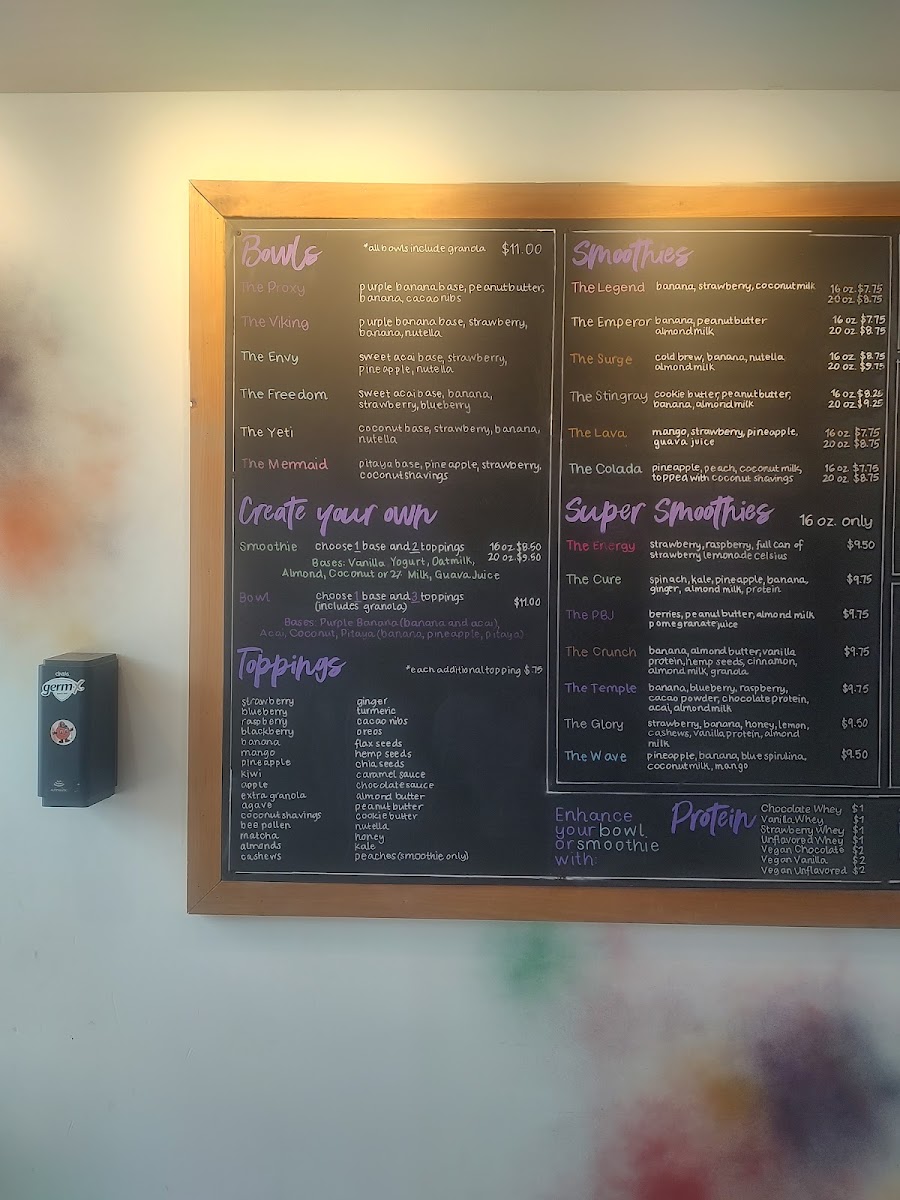 Bowls *all bowls include granola $11.00
The Proxy purple banana base, peanut butter,
banana, cacao nibs
The Viking purple banana base, strawberry,
banana, nutella
The Envy sweet acai base, strawberry,
pineapple, nutella
The Freedom sweet acai base, banana,
strawberry, blueberry
The Yeti coconut base, strawberry, banana,
nutella
The Mermaid pitaya base, pineapple, strawberry,
coconut shavings
Create your own
Smoothie choose 1 base and 2 toppings 16 oz $8.50
20 oz $9.50
Bases: Vanilla Yogurt, Oatmilk,
Almond, Coconut or 2% Milk, Guava Juice
Bowl choose 1 base and 3 toppings
(includes granola) $11.00
Bases: Purple Banana (banana and acai),
Acai, Coconut, Pitaya (banana, pineapple, pitaya)
Toppings *each additional topping $.75
strawberry
blueberry
raspberry
blackberry
banana
mango
pineapple
kiwi
apple
extra granola
agave
coconut shavings
bee pollen
matcha
almonds
cashews
ginger
turmeric
cacao nibs
oreos
flax seeds
hemp seeds
chia seeds
caramel sauce
chocolate sauce
almond butter
peanut butter
cookie butter
nutella
honey
kale
peaches (smoothie only)
Smoothies
The Legend banana, strawberry, coconut milk 16 oz. $7.75
20 oz. $8.75
The Emperor banana, peanut butter 16 oz. $7.75
almond milk 20 oz. $8.75
The Surge cold brew, banana, nutella 16 oz. $8.75
almond milk 20 oz. $9.75
The Stingray cookie butter, peanut butter, 16 oz $8.25
banana, almond milk 20 oz $9.25
The Lava mango, strawberry, pineapple, 16 oz $7.75
guava juice 20 oz. $8.75
The Colada pineapple, peach, coconut milk, 16 oz $7.75
topped with coconut shavings 20 oz. $8.75
Super Smoothies 16 oz. only
The Energy strawberry, raspberry, full can of $9.50
strawberry lemonade Celsius
The Cure spinach, kale, pineapple, banana, $9.75
ginger, almond milk, protein
The PBJ berries, peanut butter, almond milk $9.75
pomegranate juice
The Crunch banana, almond butter, vanilla $9.75
protein, hemp seeds, cinnamon,
almond milk, granola
The Temple banana, blueberry, raspberry, $9.75
cacao powder, chocolate protein,
acai, almond milk
The Glory strawberry, banana, honey, lemon, $9.50
cashews, vanilla protein, almond
milk
The Wave pineapple, banana, blue spirulina, $9.50
coconut milk, mango
Enhance
your bowl
or smoothie
with:
Protein
Chocolate Whey $1
Vanilla Whey $1
Strawberry Whey $1
Unflavored Whey $1
Vegan Chocolate $2
Vegan Vanilla $2
Vegan Unflavored $2
germ